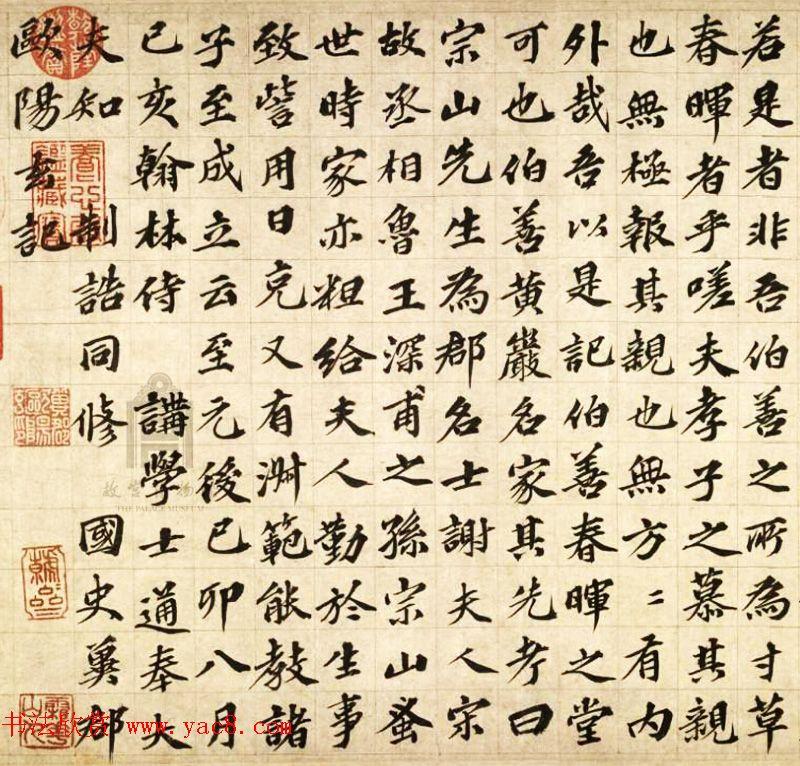 若是者非吾伯善之所為寸草
春暉者乎嗟夫孝子之慕其親
也無極報其親也無方〻有內
外哉吾以是記伯善春暉之堂
可也伯善黄巖名家其先考曰
宗山先生為郡名士謝夫人宋
故丞相魯王深甫之孫宗山蚤
世時家亦粗給夫人勤於生事
致訾用日充又有淑範能教諸
子至成立云至元後己卯八月
己亥翰林侍講學士通奉大
夫知制誥同修國史冀郡
歐陽玄記
THE PALACE MUSEUM
书法欣赏 www.yac8.com